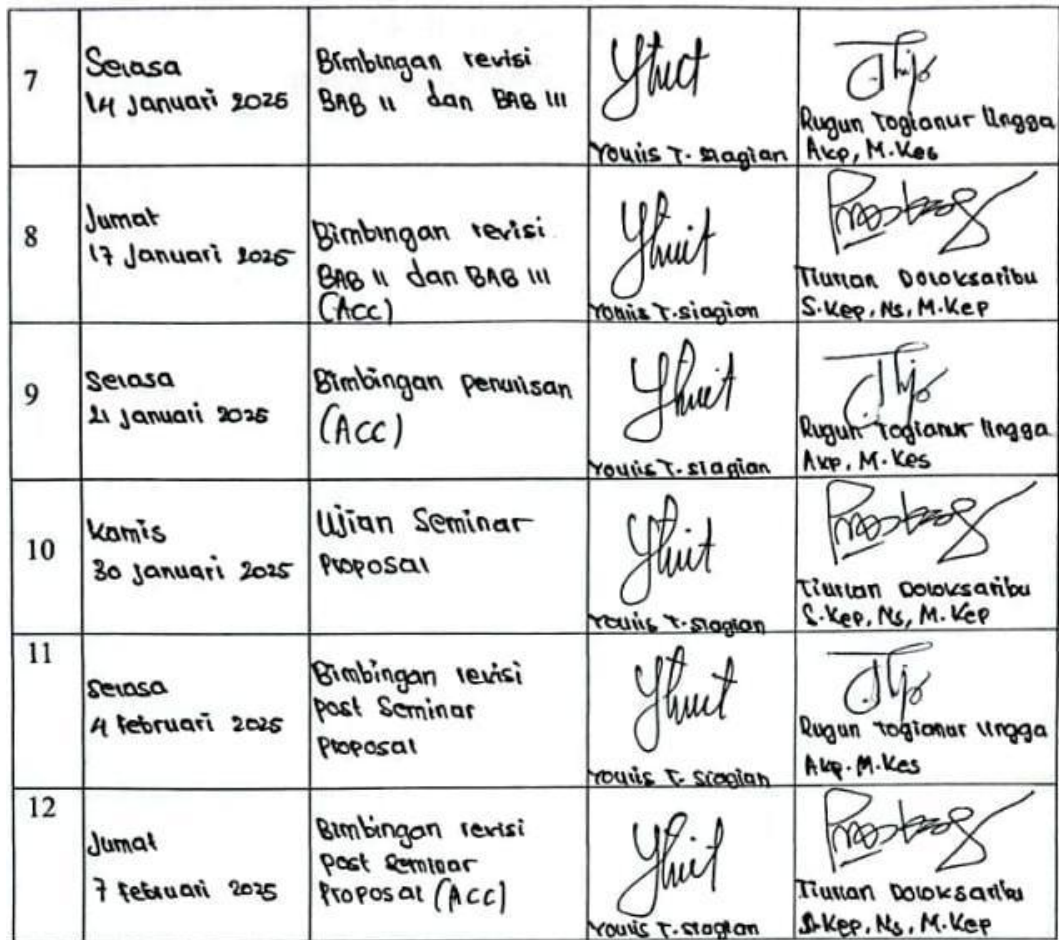 7
Selasa
14 Januari 2025
Bimbingan revisi
BAB II dan BAB III
Youlis T. Siagian
Rugun Togianur Lingga
Akp, M.Kes
8
Jumat
17 Januari 2025
Bimbingan revisi
BAB II dan BAB III
(Acc)
Youlis T. Siagian
Tiurlan Doloksaribu
S.Kep, Ns, M.Kep
9
Selasa
21 Januari 2025
Bimbingan penulisan
(Acc)
Youlis T. Siagian
Rugun Togianur Lingga
Akp, M.Kes
10
Kamis
30 Januari 2025
Ujian Seminar
Proposal
Youlis T. Siagian
Tiurlan Doloksaribu
S.Kep, Ns, M.Kep
11
Selasa
4 Februari 2025
Bimbingan revisi
post Seminar
Proposal
Youlis T. Siagian
Rugun Togianur Lingga
Akp. M.Kes
12
Jumat
7 Februari 2025
Bimbingan revisi
post Seminar
Proposal (Acc)
Youlis T. Siagian
Tiurlan Doloksaribu
S.Kep, Ns, M.Kep